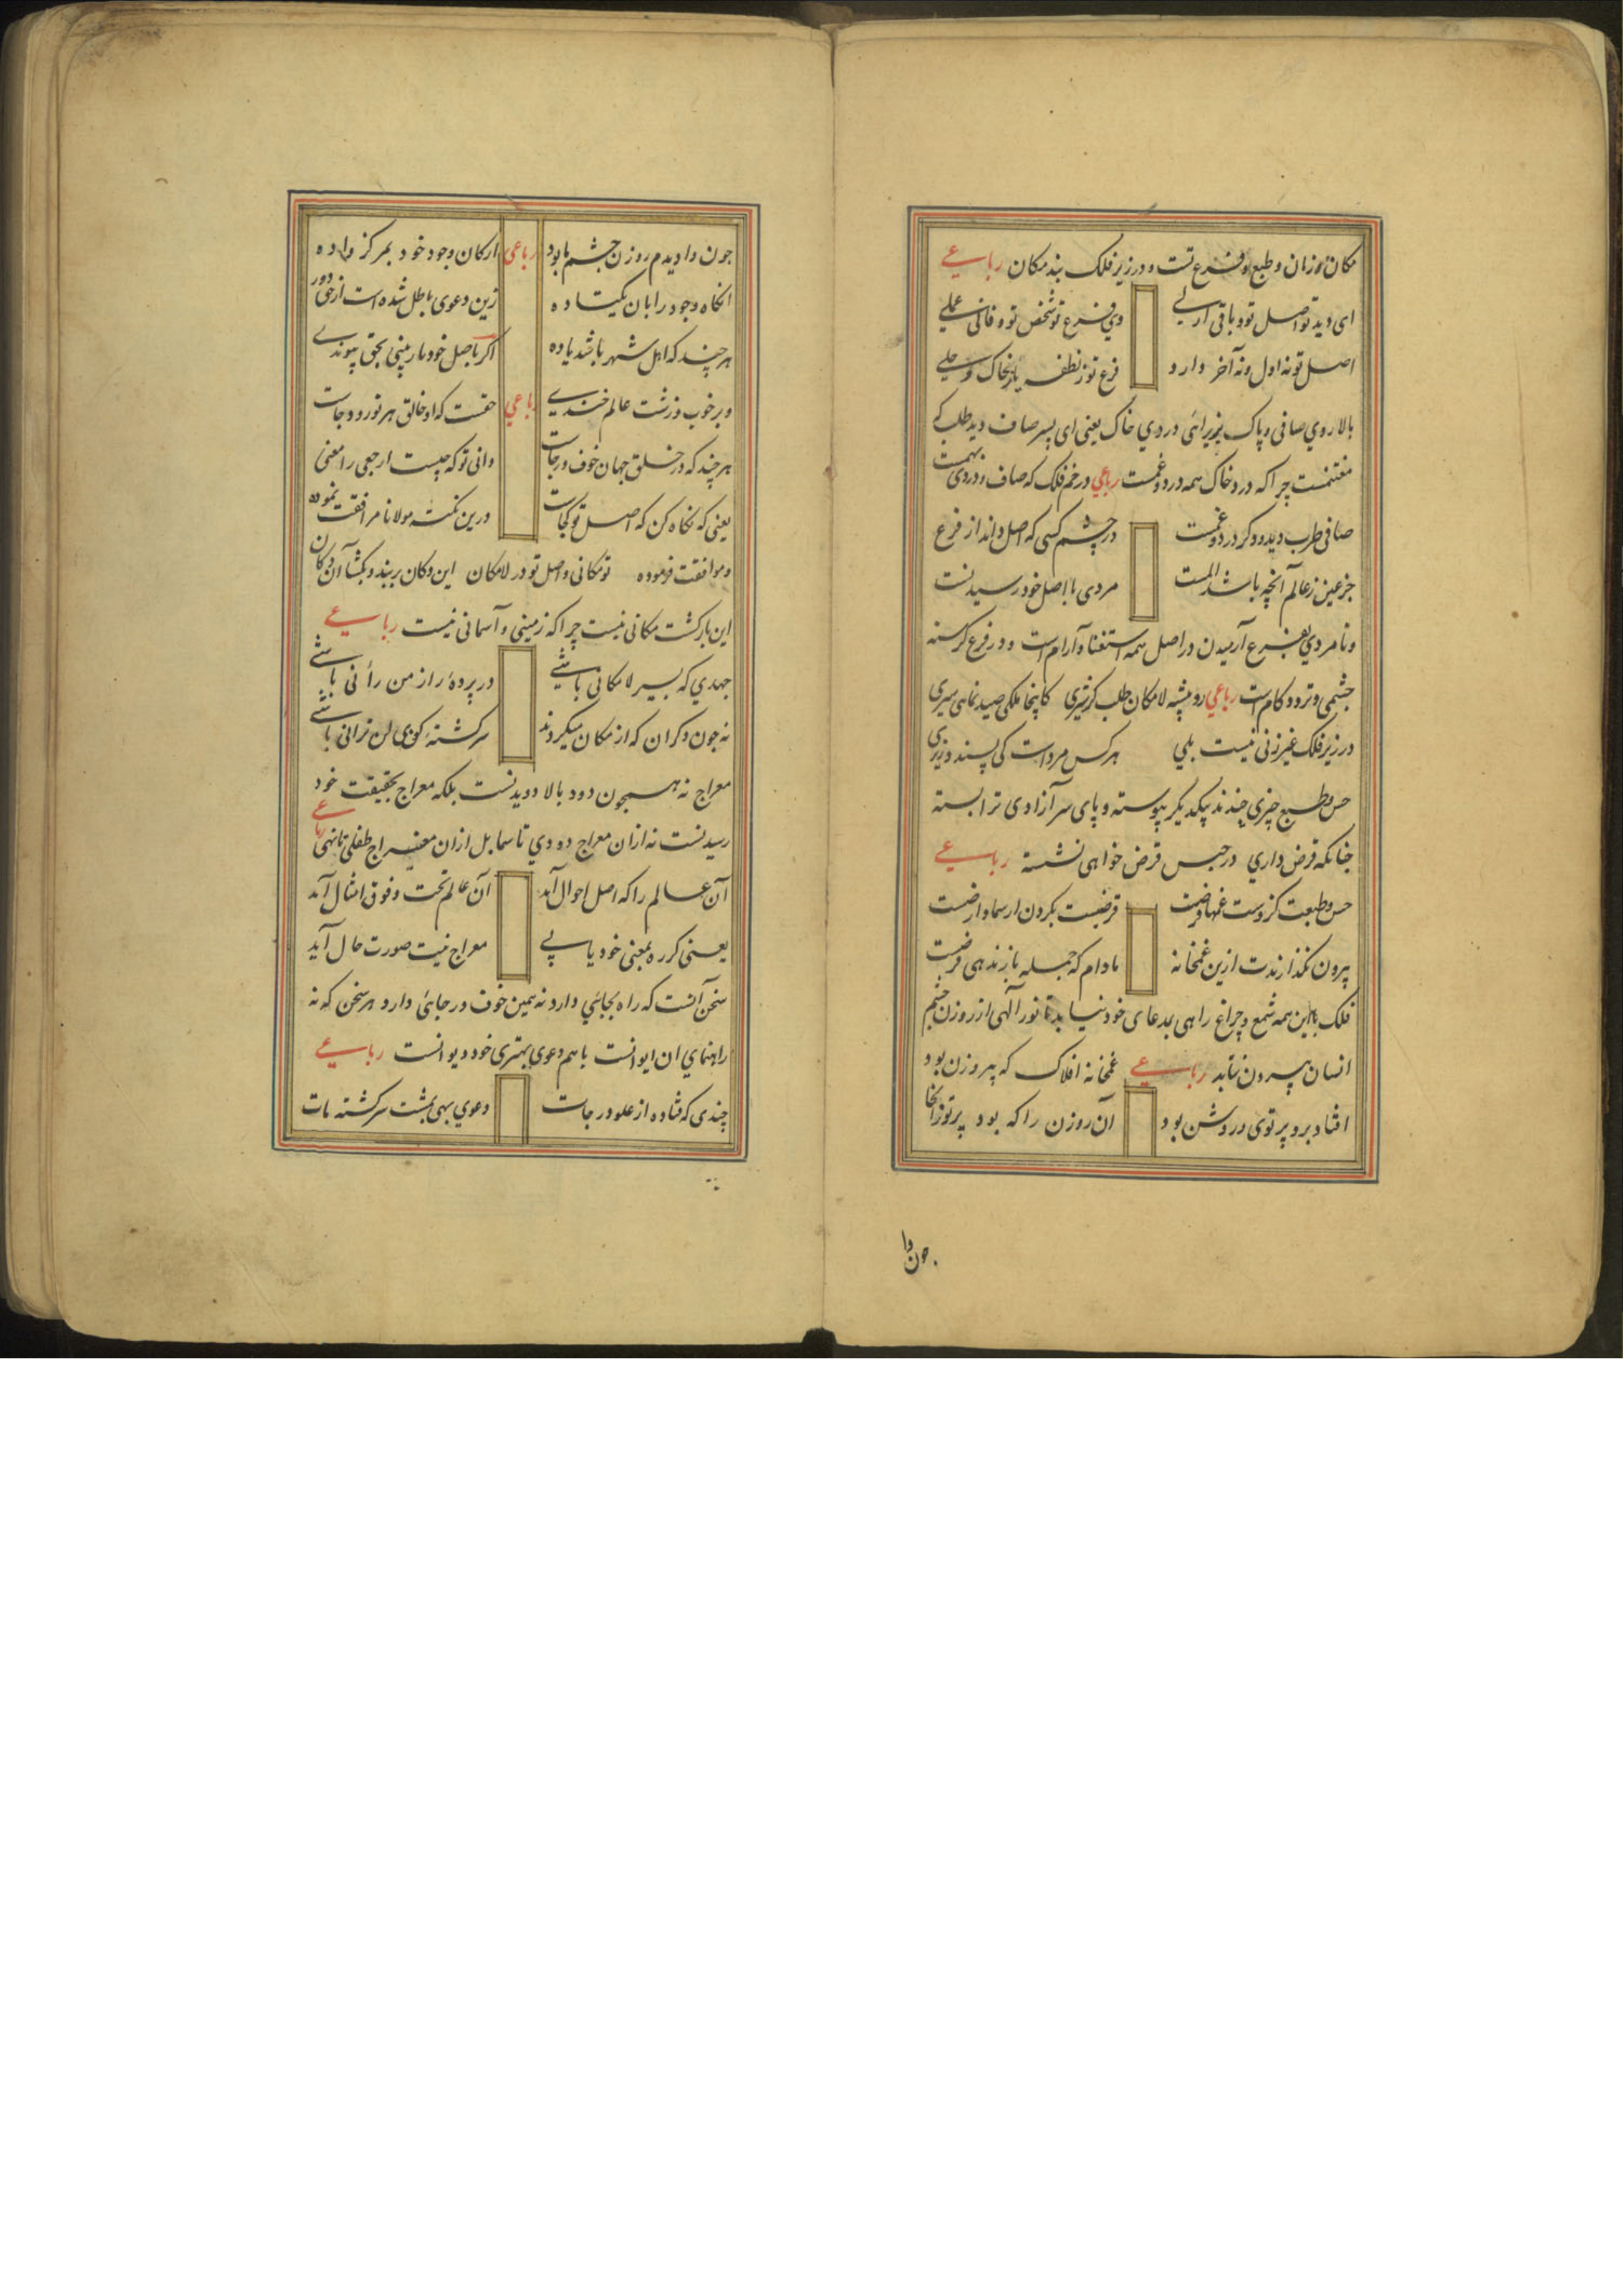 مکان و زمان و طبع و فرع تست و در زیر فلک بند مکان رباعی
ای دید تو اصل تو و باقی ازلی وی فرع تو شخص تو و فانی عملی
اصل تو نه اول و نه آخر دارد فرع تو ز نطفه یا ز خاک وحلی
بالا روی صافی و پاک بزیر آئی دردی خاک یعنی ای پسر صاف دید طلب که
مغتنمست چرا که درد خاک همه درد و غمست رباعی در خم فلک که صاف و دردی بهمست
صافی طرب دید و دگر درد و غمست در چشم کسی که اصل داند از فرع
جز عین ز عالم آنچه باشد المست مردی با اصل خود رسیدنست
و نامردی بفرع آرمیدن در اصل همه استغنا و آرام است و در فرع گرسنه
چشمی و تردد کام است رباعی رو بیشه لامکان طلب گر شیری کاینجا ملکی صید نمایی سیری
در زیر فلک غیر زنی نیست بلی هر کس مردست کی پسندد زیری
حس و طبع چیزی چندند بیکدیگر پیوسته و پای سر آزادی ترا بسته
چنانکه قرض داری در حبس قرض خواهی نشسته رباعی
حس و طبعت کزوست غمها قرضیت قرضیست بگردن ار سما و ار ضیست
بیرون نگذارندت ازین غمخانه مادام که جمله باز ندهی قرضیت
فلک با این همه شمع و چراغ راهی بمدعای خود نیابد تا نور آلهی از روزن چشم
انسان بیرون نتابد رباعی غمخانه افلاک که بیروزن بود
افتاد برو پرتوی و روشن بود آن روزن را که بود پرتو زانجا
چون وا
چون وادیدم روزن چشم ما بود رباعی ارکان وجود خود بمرکز داده
انکاه وجود را بان یکتا ده زین دعوی باطل شده است از حق دور
هر چند که اهل شهر باشد یا ده اگر باصل خود ما ربینی بحق پیوندی
و بر خوب و زشت عالم خندی رباعی حقست که او خالق هر نور و دجات
هر چند که در خلق جهان خوف و رجات دانی تو که چیست ارجعی را معنی
یعنی که نگاه کن که اصل تو کجات درین نکته مولانا مرافقت نموده
و موافقت فرموده تو مکانی و اصل تو در لامکان این دکان بربند و بگشا آن دکان
این بازگشت مکانی نیست چرا که زمینی و آسمانی نیست رباعی
جهدی که بسیر لامکانی باشی در پرده راز من رأنی باشی
نه چون دگران که از مکان میگردند سرگشته کوی لن ترانی باشی
معراج نه همچون دود بالا دویدنست بلکه معراج بحقیقت خود
رسیدنست نه ازان معراج دودی تا سما بل ازان معراج طفلی تا نهی رباعی
آن عالم را که اصل احوال آمد آن عالم تحت و فوق امثال آمد
یعنی که ره بمعنی خود یابی معراج نیت صورت حال آید
سخن آنست که راه بجائی دارد نه همین خوف و رجائی دارد هر سخن که نه
راهنمای ان ایوانست با هم دعوی بهتری خود دیوانست رباعی
چندی که فتاده از علو درجات دعوی بهی بمشت سرگشته مات